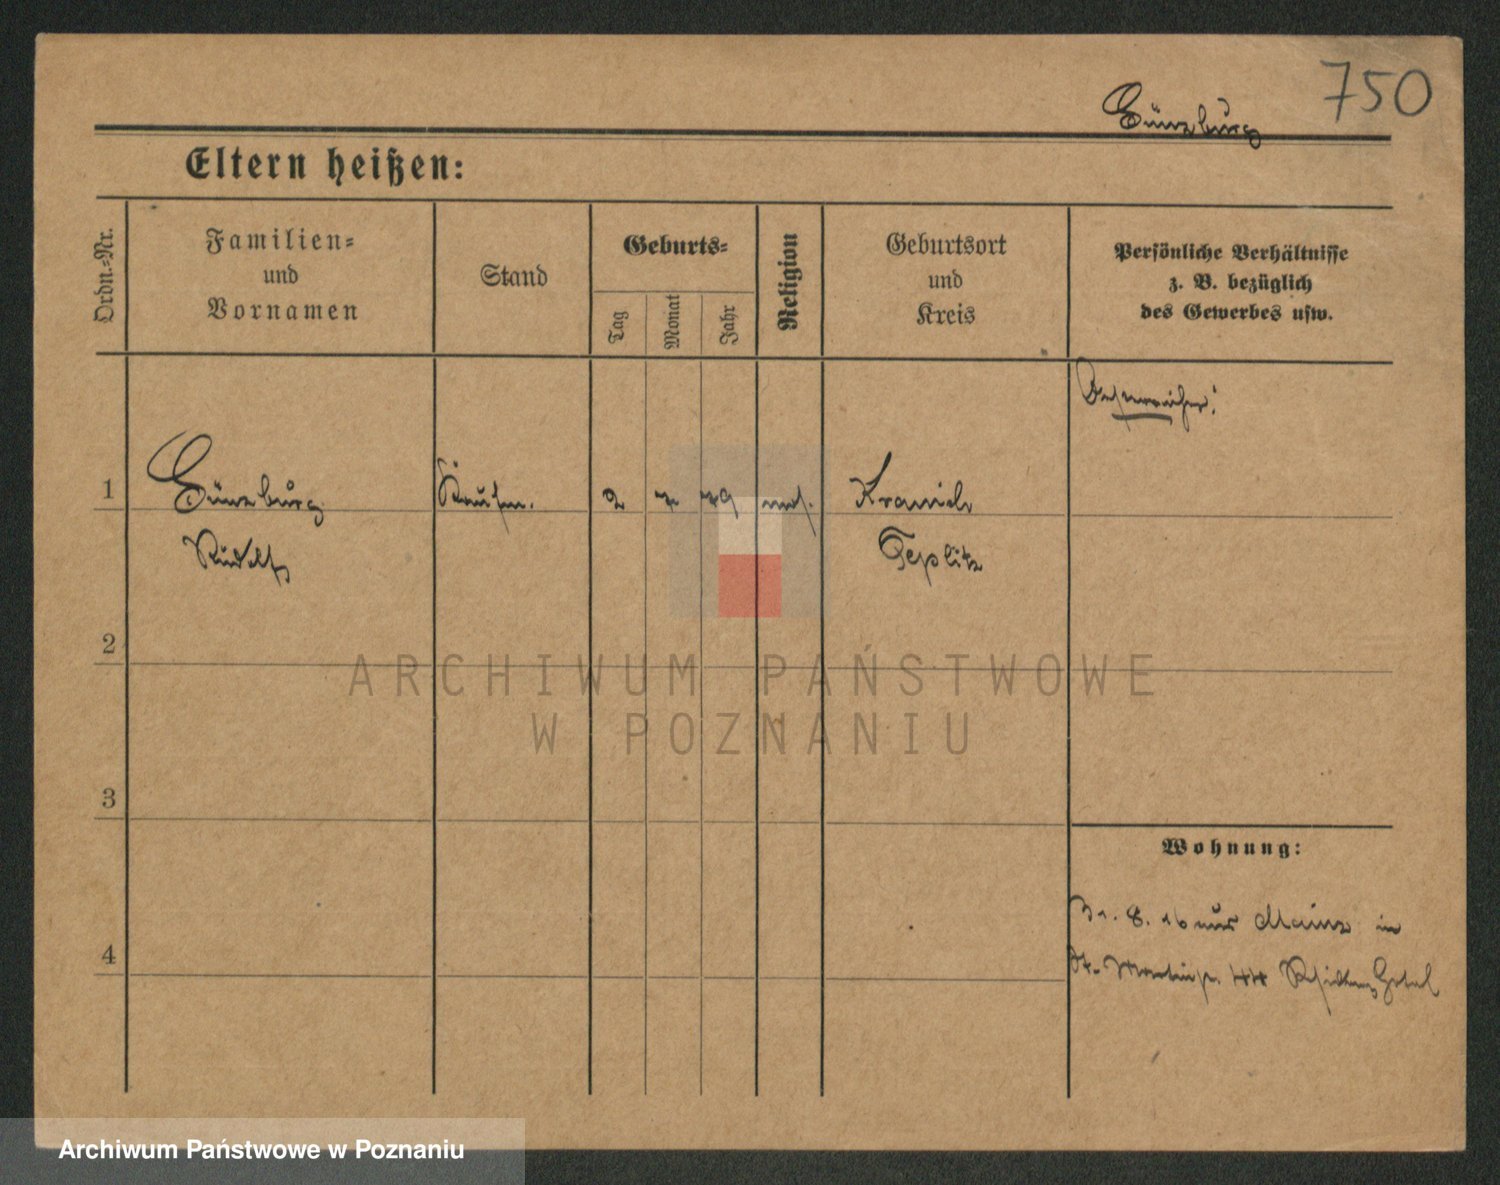 750
Günzburg
Eltern heißen:
Ordn.-Nr.
Familien-
und
Vornamen
Stand
Geburts-
Tag
Monat
Jahr
Religion
Geburtsort
und
Kreis
Persönliche Verhältnisse
z. B. bezüglich
des Gewerbes usw.
Oesterreicher!
1
Günzburg
Rudolf
Kaufm.
2
7
79
mos.
Teplitz
2
3
4
Wohnung:
8. 16 aus Mainz in
St. Martinstr. 44 Hotel
ARCHIWUM PAŃSTWOWE
W POZNANIU
Archiwum Państwowe w Poznaniu